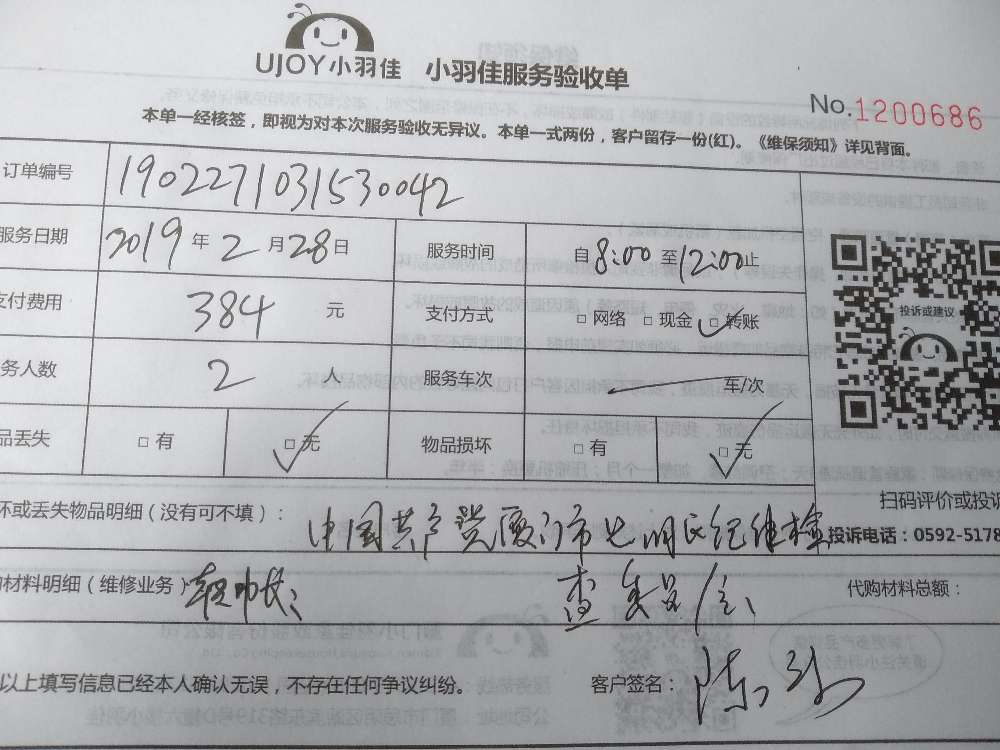 UJOY小羽佳 小羽佳服务验收单
No.1200686
本单一经核签，即视为对本次服务验收无异议。本单一式两份，客户留存一份(红)。《维保须知》详见背面。
订单编号 1902271031530042
服务日期 2019年2月28日 服务时间 自8:00至12:00止
支付费用 384元 支付方式 □网络 □现金 □转账
务人数 2人 服务车次 车/次
品丢失 □有 □无 物品损坏 □有 □无
投诉或建议
扫码评价或投诉
坏或丢失物品明细（没有可不填）： 中国共产党厦门市思明区纪律检
投诉电话：0592-5178
材料明细（维修业务） 查委员会 代购材料总额：
以上填写信息已经本人确认无误，不存在任何争议纠纷。 客户签名： 陈